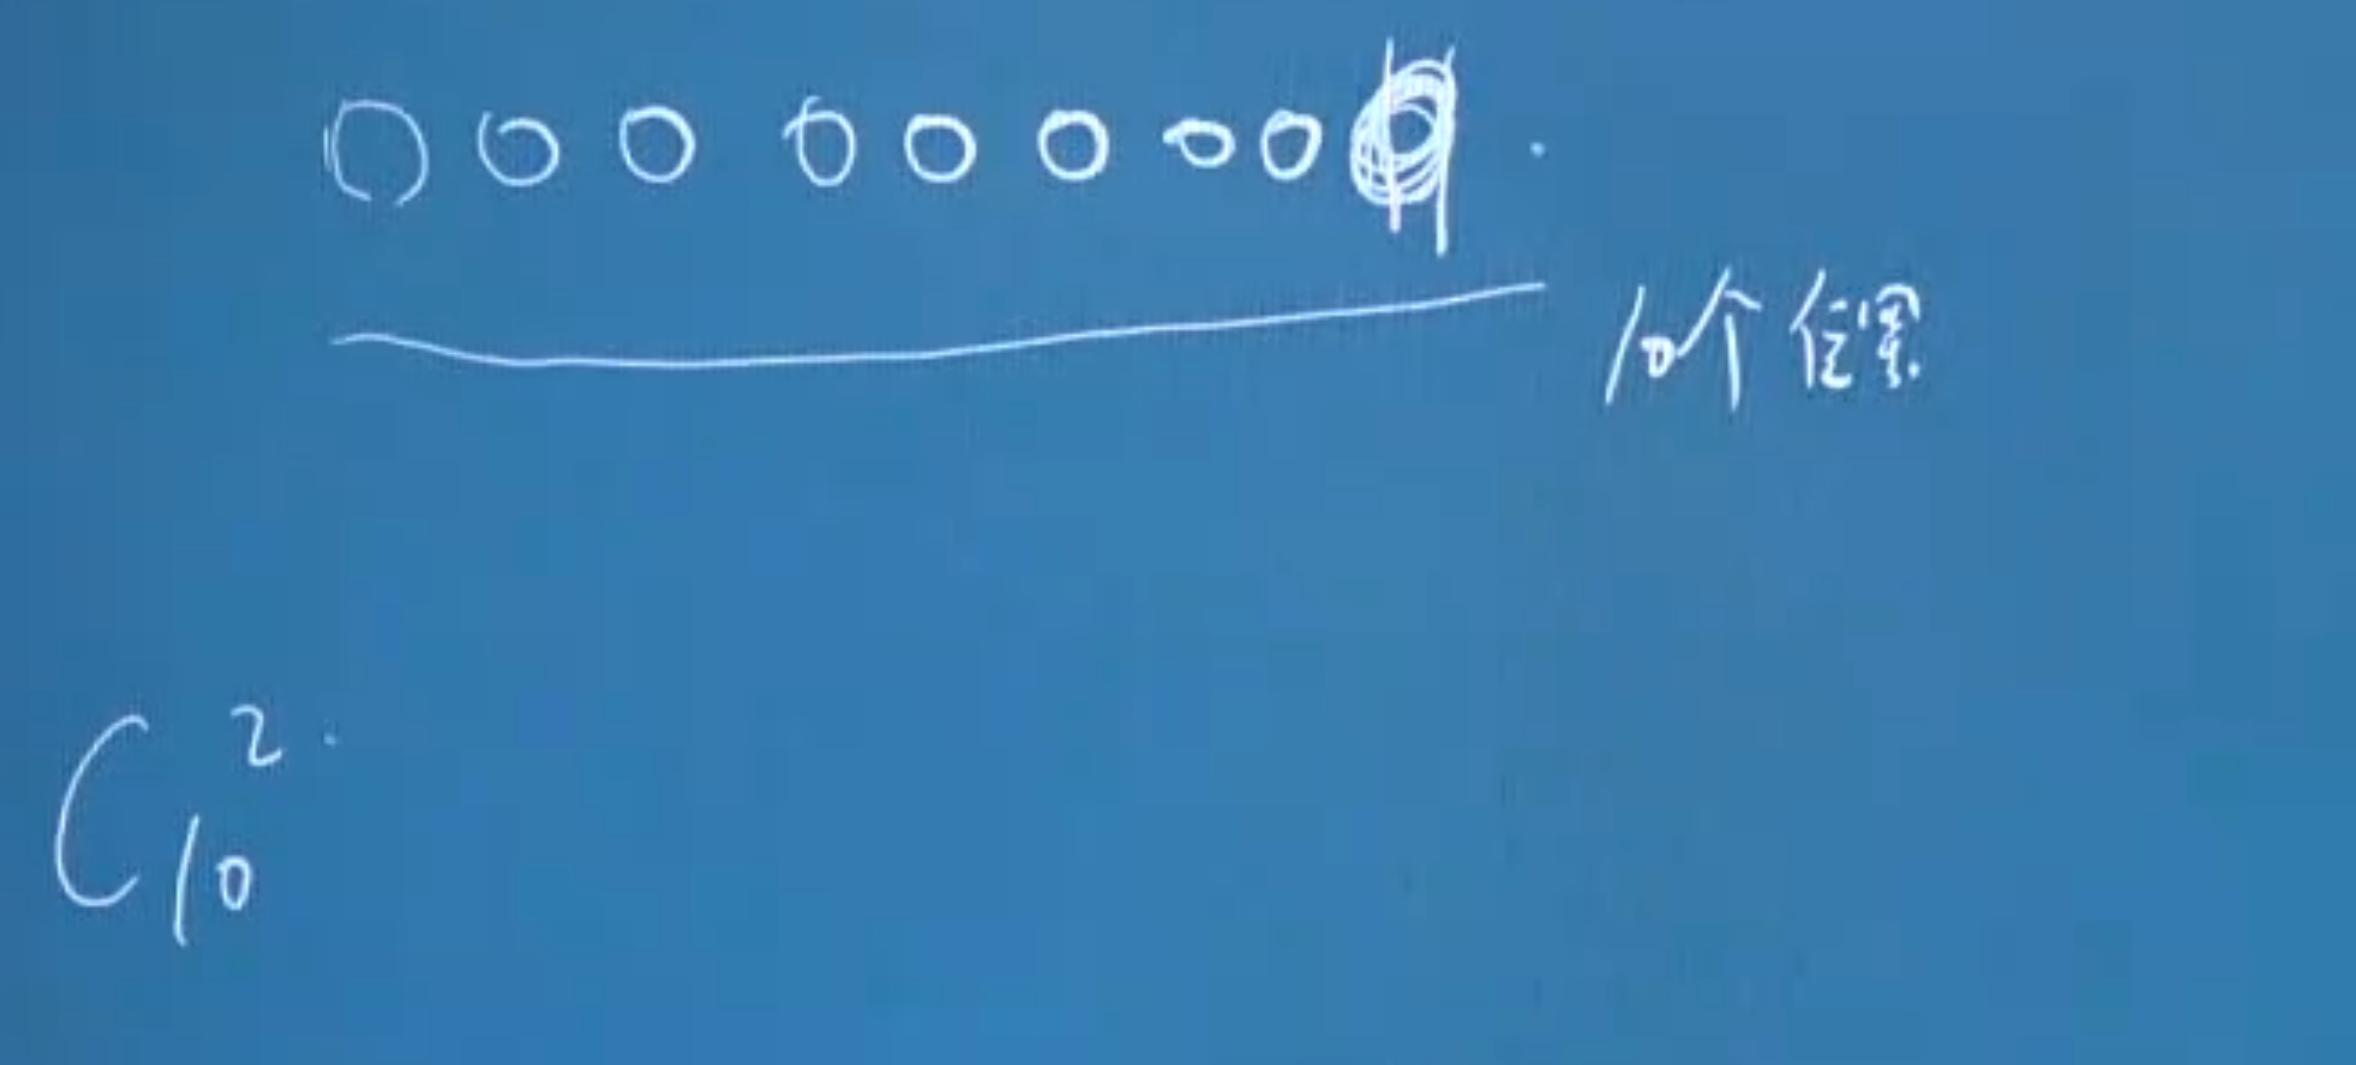 10个位置.
C₁₀².